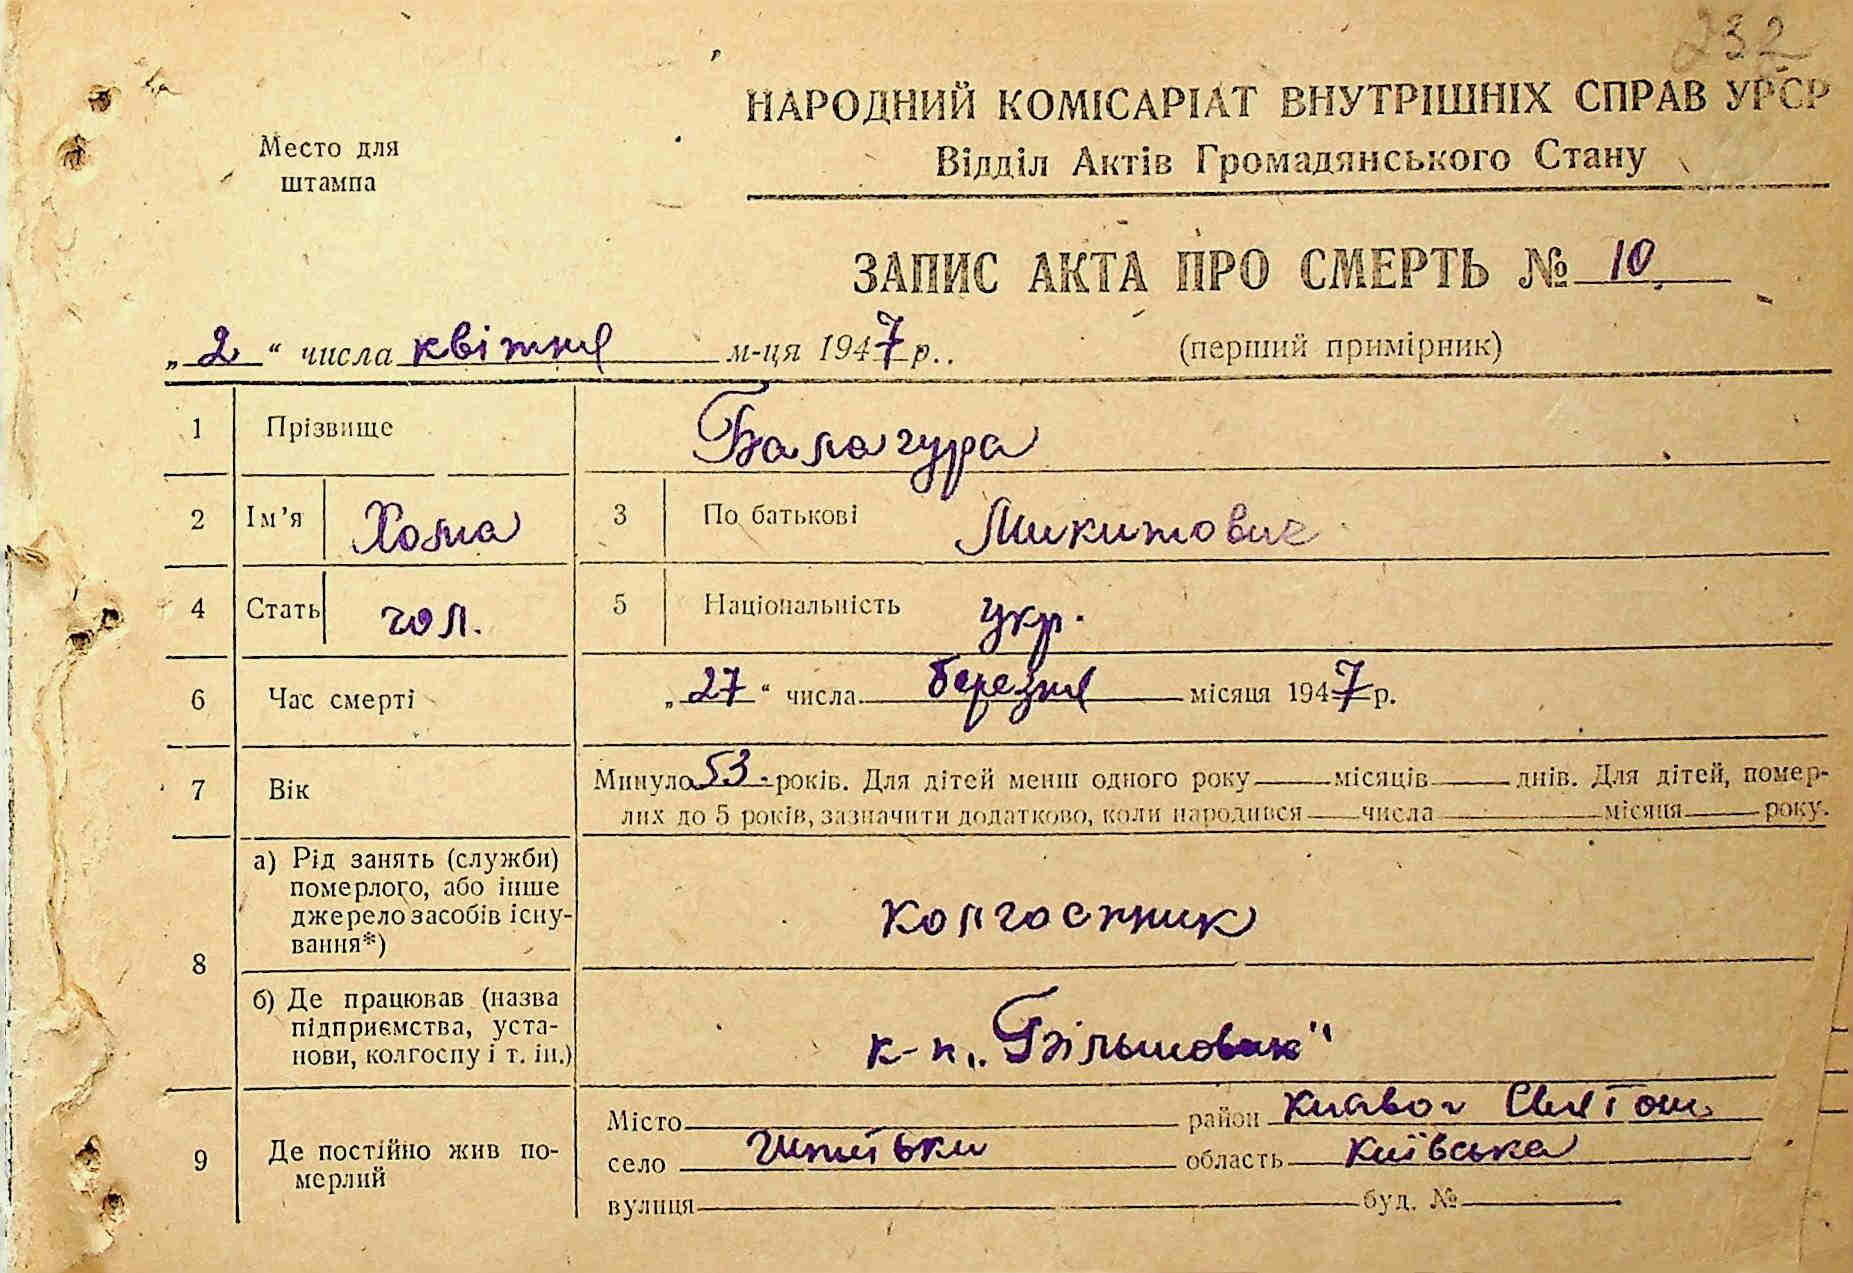 232
НАРОДНИЙ КОМІСАРІАТ ВНУТРІШНІХ СПРАВ УРСР
Відділ Актів Громадянського Стану
Место для
штампа
ЗАПИС АКТА ПРО СМЕРТЬ № 10
„ 2 “ числа квітня м-ця 1947 р..
(перший примірник)
1 Прізвище Балагура
2 Ім’я Хома 3 По батькові Микитович
4 Стать чол. 5 Національність укр.
6 Час смерті „ 27 “ числа березня місяця 1947 р.
7 Вік Минуло 53 років. Для дітей менш одного року місяців днів. Для дітей, помер-
лих до 5 років, зазначити додатково, коли народився числа місяця року.
8 а) Рід занять (служби)
померлого, або інше
джерело засобів існу-
вання*)
колгоспник
б) Де працював (назва
підприємства, уста-
нови, колгоспу і т. ін.)
к-п „Більшовик"
9 Де постійно жив по-
мерлий
Місто район Святош.
село область Київська
вулиця буд. №